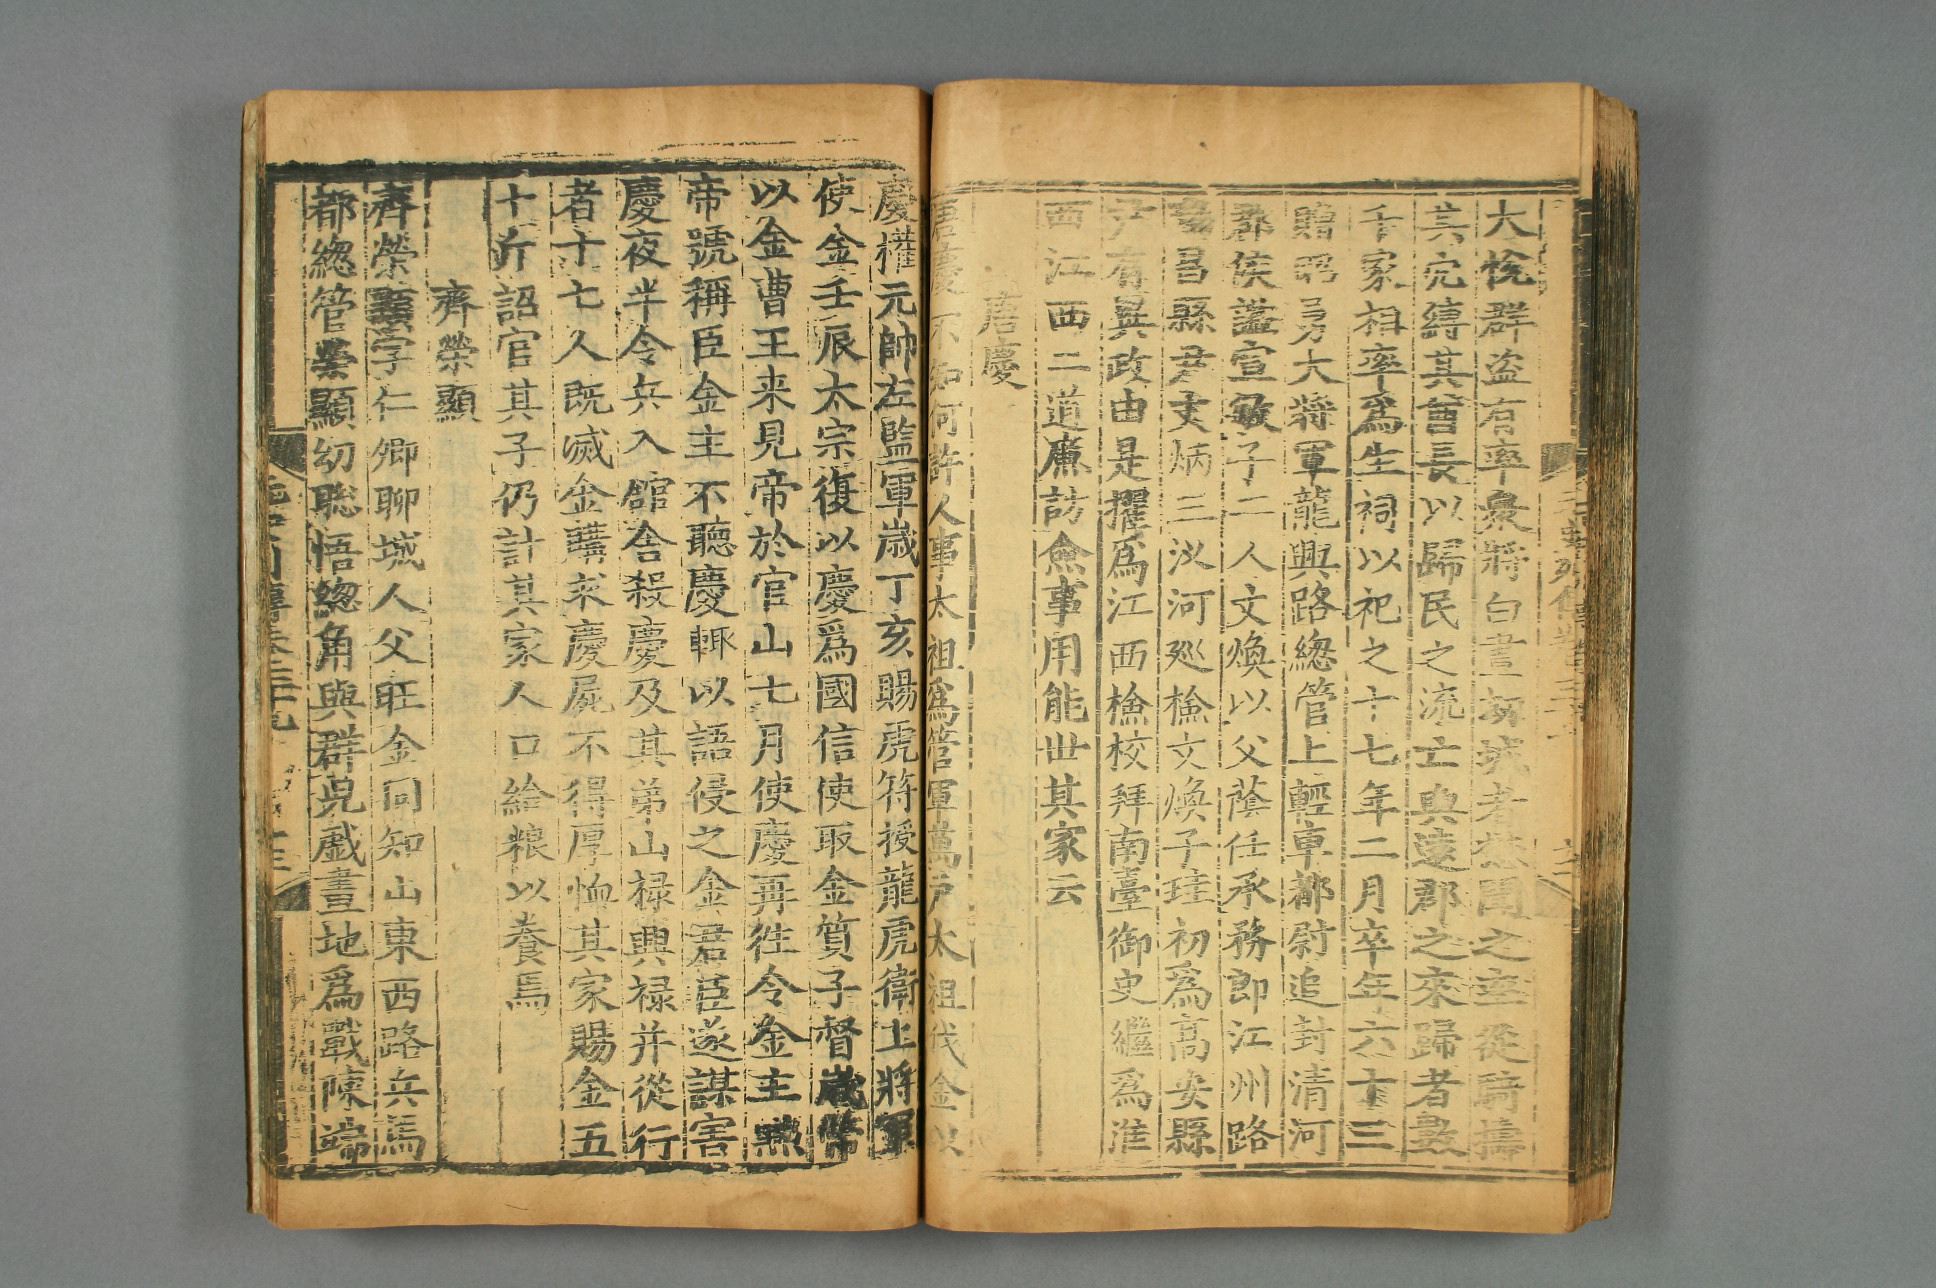 大悅群盗有率衆將白晝劫城者惣聞之率從騎擣
其穴縛其酋長以歸民之流亡與遠郡之來歸者數
千家相率爲生祠以祀之十七年二月卒年六十三
贈昭勇大將軍龍興路總管上輕車都尉追封清河
郡侯謚宣敏子二人文煥以父蔭任承務郎江州路
瑞昌縣尹文炳三汊河廵檢文煥子珪初爲高安縣
尹有異政由是擢爲江西檢校拜南臺御史繼爲淮
西江西二道廉訪僉事用能世其家云
唐慶
唐慶不知何許人事太祖爲管軍萬户太祖伐金以
慶權元帥左監軍歲丁亥賜虎符授龍虎衛上將軍
使金壬辰太宗復以慶爲國信使取金質子督歲幣
以金曹王来見帝於官山七月使慶再徃令金主黜
帝號稱臣金主不聽慶輒以語侵之金君臣遂謀害
慶夜半令兵入舘舎殺慶及其弟山禄興禄并從行
者十七人既滅金購求慶屍不得厚恤其家賜金五
十斤詔官其子仍計其家人口給粮以養焉
齊榮顯
齊榮顯字仁卿聊城人父旺金同知山東西路兵馬
都總管榮顯幼聡悟總角與群兒戲畫地爲戰陳端